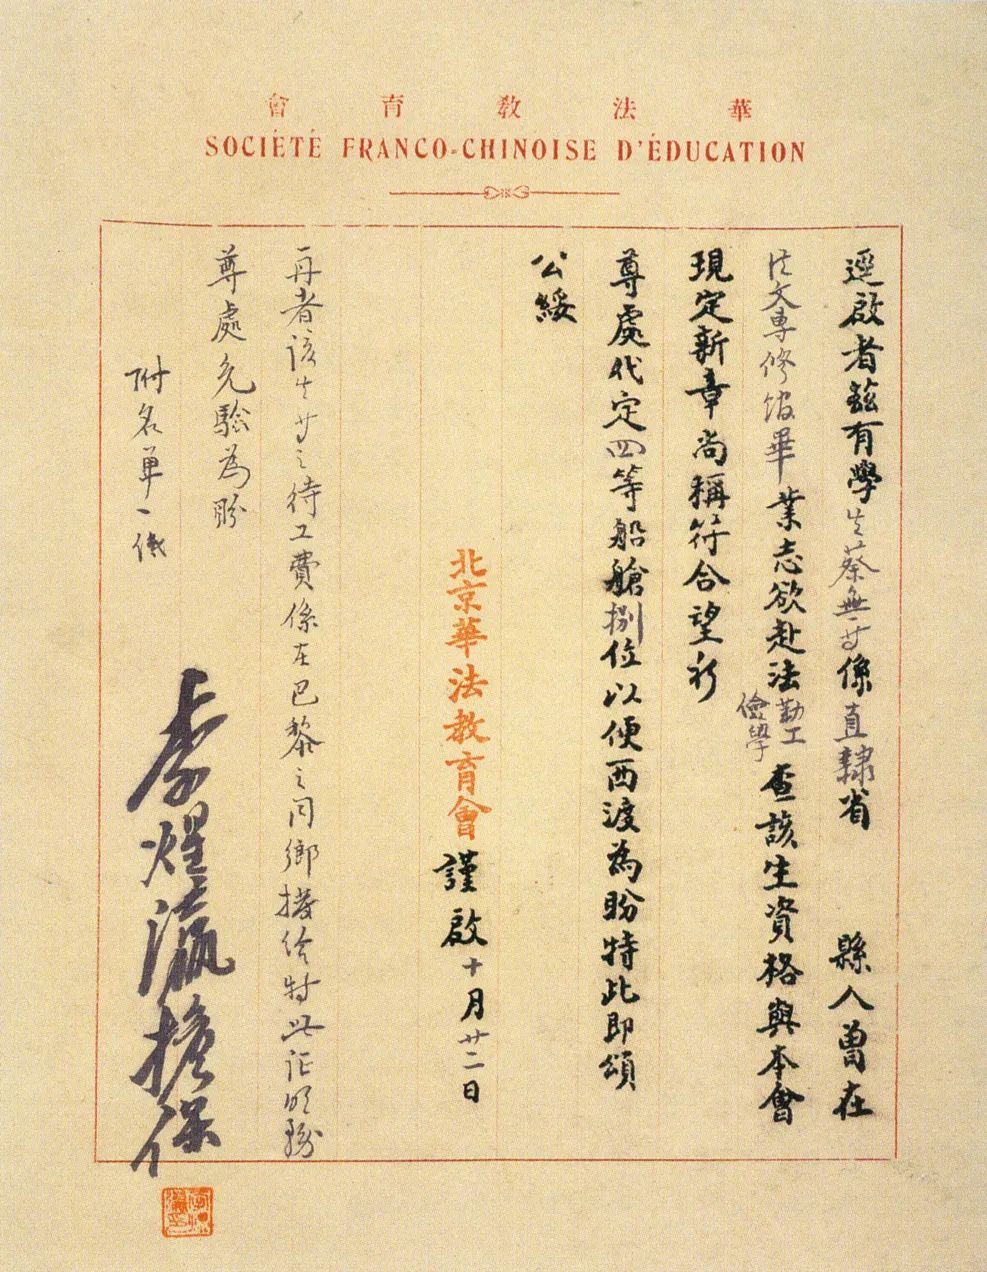 華法教育會
SOCIÉTÉ FRANCO-CHINOISE D'ÉDUCATION
逕啟者茲有學生蔡無等係直隸省 縣人曾在
法文專修館畢業志欲赴法勤工儉學查該生資格與本會
現定新章尚稱符合望祈
尊處代定四等船艙捌位以便西渡為盼特此即頌
公綏
北京華法教育會謹啟十月廿二日
再者該生等之待工費係在巴黎之同鄉撥給特此証明
尊處免驗為盼
附名單一帋
李煜瀛擔保